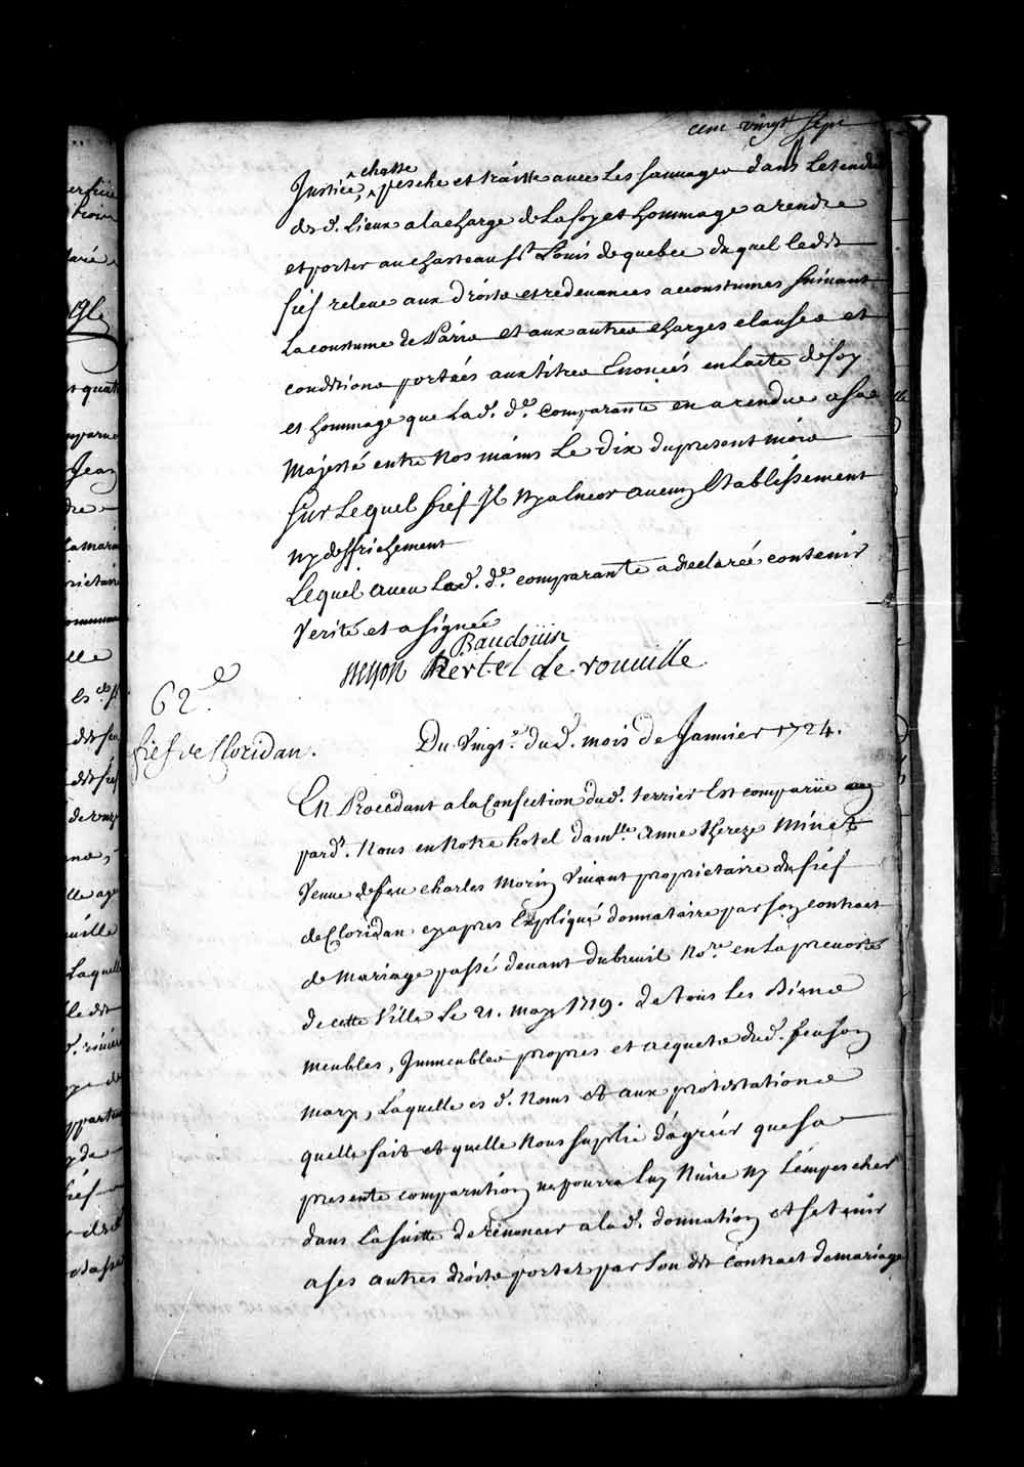 cent vingt sept
Justice, chasse pesche et traitte avec les sauvages dans letendue
desd. Lieux a la charge de La foy et hommage a rendre
et porter au chasteau St Loüis de quebec duquel ledit
fief releve aux droits et redevances accoustumes suivant
La coustume de Paris et aux autres charges clauses et
conditions portées aux titres Enoncés en Lacte de foy
et hommage que Lad. de. comparante en a rendue a sa
Majesté entre Nos mains Le dix du present mois
Sur Lequel fief Il Ny a Encor aucun Etablissement
Ny deffrichement
Lequel aveu Lad. de. comparante a declaré contenir
Verité et a signée
Baudoüin
hertel de rouuille
62.e
fief de Cloridan.
Du Vingt.e dud. mois de Janvier 1724.
En Procedant a la Confection dud. terrier Est comparüe
pard. Nous en Notre hotel damlle. anne thereze Minet
Veuve de feu charles Morin Vivant proprietaire du fief
de Cloridan cy apres Expliqué donnataire par son contract
de Mariage passé devant dubreuil Nore. en La prevosté
de cette Ville Le 21. may 1719. de tous Les Biens
meubles, Immeubles propres et acquets dud. feu son
mary, Laquelle es d. Noms et aux protestations
quelle fait et quelle Nous suplie d'agréér que sa
presente comparution ne pourra Luy Nuire Ny L'empescher
dans La suitte de renoncer a lad. donnation et se tenir
a ses autres droits portez par Son dit contract de mariage